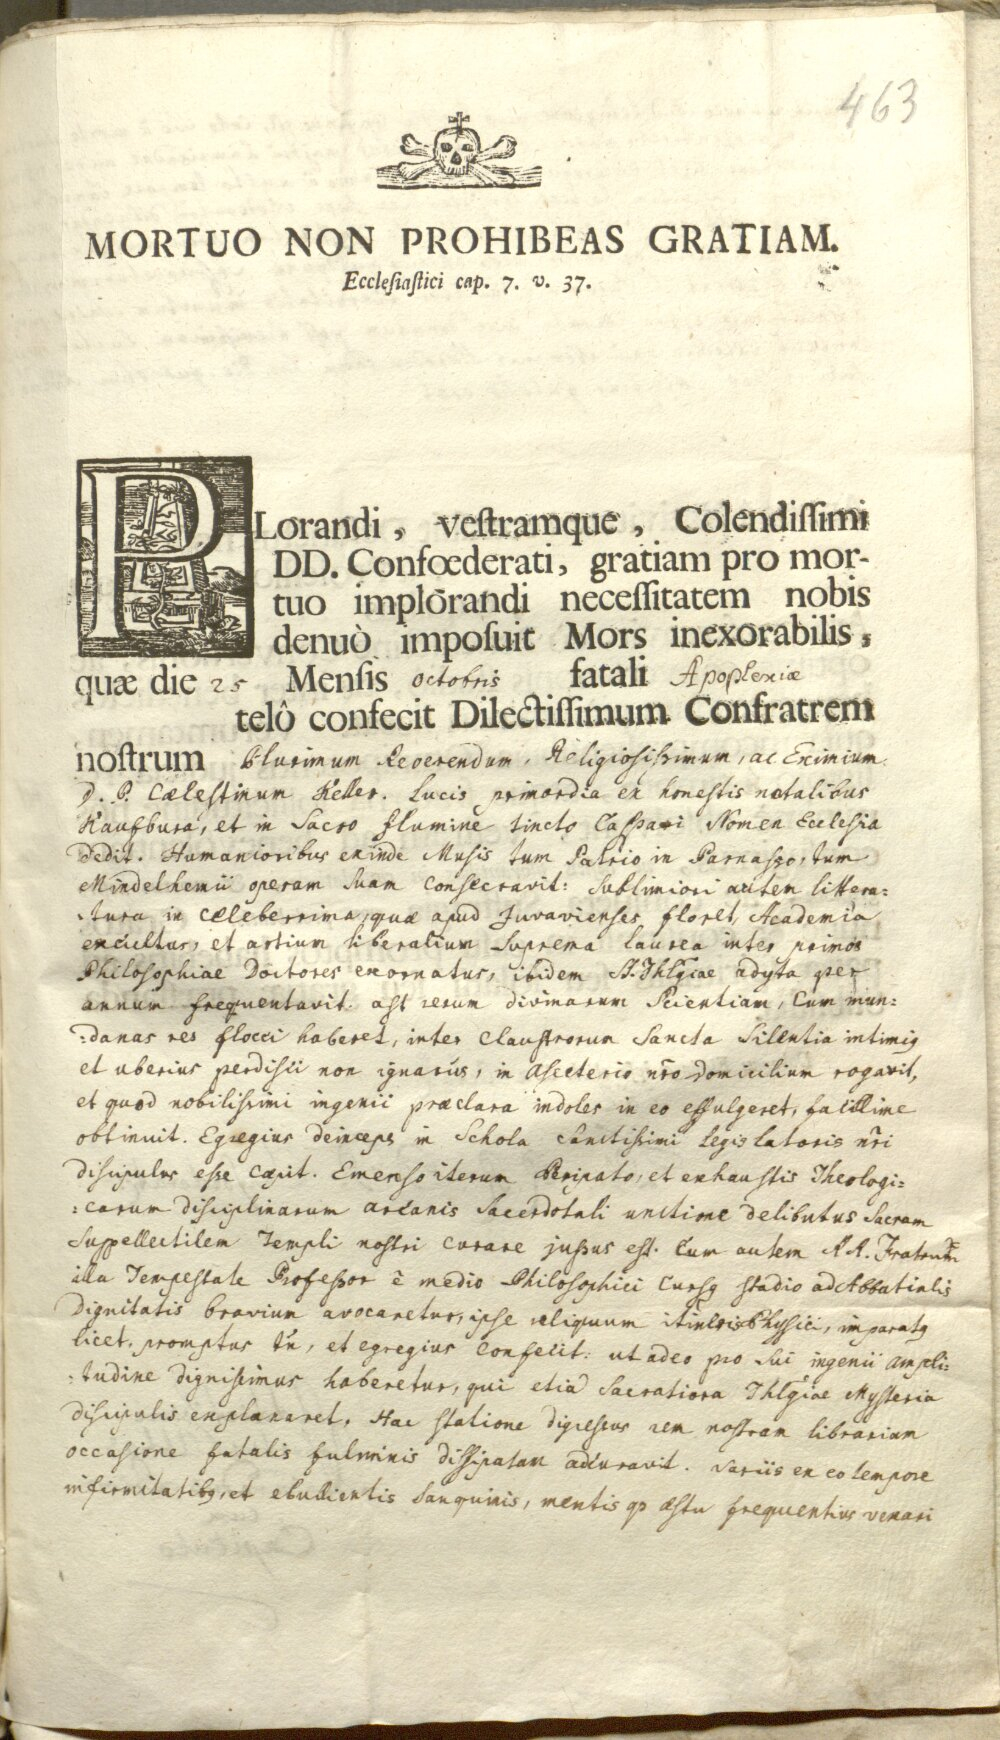 463
MORTUO NON PROHIBEAS GRATIAM.
Ecclesiastici cap. 7. v. 37.
PLorandi, vestramque, Colendissimi
DD. Confœderati, gratiam pro mor-
tuo implōrandi necessitatem nobis
denuò imposuit Mors inexorabilis,
quæ die 25 Mensis octobris fatali Apoplexiæ
telô confecit Dilectissimum Confratrem
nostrum Plurimum Reverendum, Religiosissimum, ac Eximium
D. P. Cælestinum Keller. Lucis primordia ex honestis natalibus
Kaufbura, et in Sacro flumine tincto Caspari Nomen Ecclesia
dedit. Humanioribus exinde Musis tum Patrio in Parnasso, tum
Mindelhemii operam suam consecravit: sublimiori autem littera=
=tura in celeberrima, quæ apud Juvavienses floret, Academia
excultus, et artium liberalium suprema laurea inter primos
Philosophiae Doctores exornatus, ibidem S. Thlgiae adyta per
annum frequentavit. ast rerum divinarum Scientiam, cum mun=
=danas res flocci haberet, inter Claustrorum Sancta Silentia intimig
et uberius perdisci non ignarus, in Asceterio nro domicilium rogavit,
et quod nobilissimi ingenii præclara indoles in eo effulgeret, facillime
obtinuit. Egregius deinceps in Schola Sanctissimi Legislatoris nri
discipulus esse cæpit. Emenso iterum Peripato, et exhaustis Theologi=
=carum disciplinarum arcanis Sacerdotali unctione delibutus Sacram
Suppellectilem Templi nostri curare jussus est. Cum autem RR. Fratrum
illa Tempestate Professor è medio Philosophici Cursg stadio ad Abbatialis
dignitatis bravium avocaretur, ipse reliquum itineris Physici, imparatg
licet, promptus tn, et egregius confecit: ut adeo pro sui ingenii ampli=
=tudine dignissimus haberetur, qui etiā Sacratiora Thlgiae Mysteria
discipulis explanaret. Hac statione digressus rem nostram librariam
occasione fatalis fulminis dissipatam adcuravit. Variis ex eo tempore
infirmitatibg, et ebullientis Sanguinis, mentis qp æstu frequentius vexari